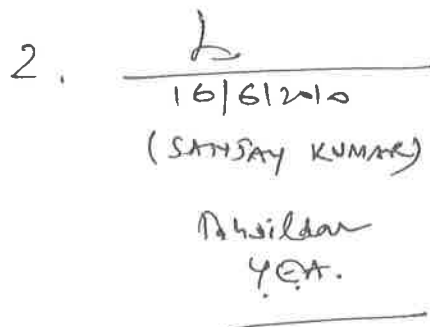 2.
16/6/2010
(SANJAY KUMAR)
Tahsildar
Y.E.A.